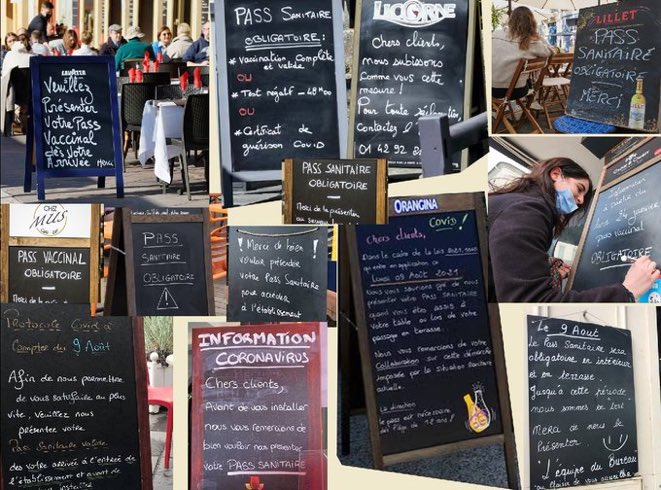 LAVAZZA
Veuillez
Présenter
Votre Pass
Vaccinal
dès Votre
Arrivée
Merci
PASS SANITAIRE
OBLIGATOIRE :
* Vaccination Complète
et valide
OU
* Test négatif - 48H00
OU
* Certificat de
guérison COVID
LICORNE
Chers clients,
nous subissons
Comme vous cette
mesure !
Pour toute réclamation
Contactez l'
01 42 92 8
LILLET
PASS
SANITAIRE
OBLIGATOIRE
MERCI
PASS SANITAIRE
OBLIGATOIRE
Merci de la présentation
au serveur !
à partir du
24 janvier
pass vaccinal
OBLIGATOIRE
CHEZ
MUS
PASS VACCINAL
OBLIGATOIRE
Merci de la présentation
PASS
SANITAIRE
OBLIGATOIRE
!
! Merci de bien !
vouloir présenter
votre Pass Sanitaire
pour accéder
à l'établissement
ORANGINA
Covid !
Chers clients,
Dans le cadre de la loi 2021
qui entre en application ce
Lundi 09 Août 2021
nous vous saurions gré de nous
présenter votre PASS SANITAIRE
quand vous êtes assis à
votre table ou lors de votre
passage en terrasse.
Nous vous remercions de votre
Collaboration sur cette démarche
imposée par la Situation Sanitaire
actuelle.
La direction
le pass est nécessaire
dès l'âge de 18 ans !
Protocole Covid à
Compter du 9 Août
Afin de nous permettre
de vous satisfaire au plus
vite, veuillez nous
présenter votre
Pass Sanitaire Valide
dès votre arrivée à l'entrée de
l'établissement et avant de
INFORMATION
CORONAVIRUS
Chers clients,
Avant de vous installer
nous vous remercions de
bien vouloir nous présenter
votre PASS SANITAIRE
Le 9 Aout
Le Pass Sanitaire sera
obligatoire en intérieur
et en terrasse.
Jusqu'à cette période
nous sommes en test
Merci de nous le
Présenter
L'équipe du Bureau